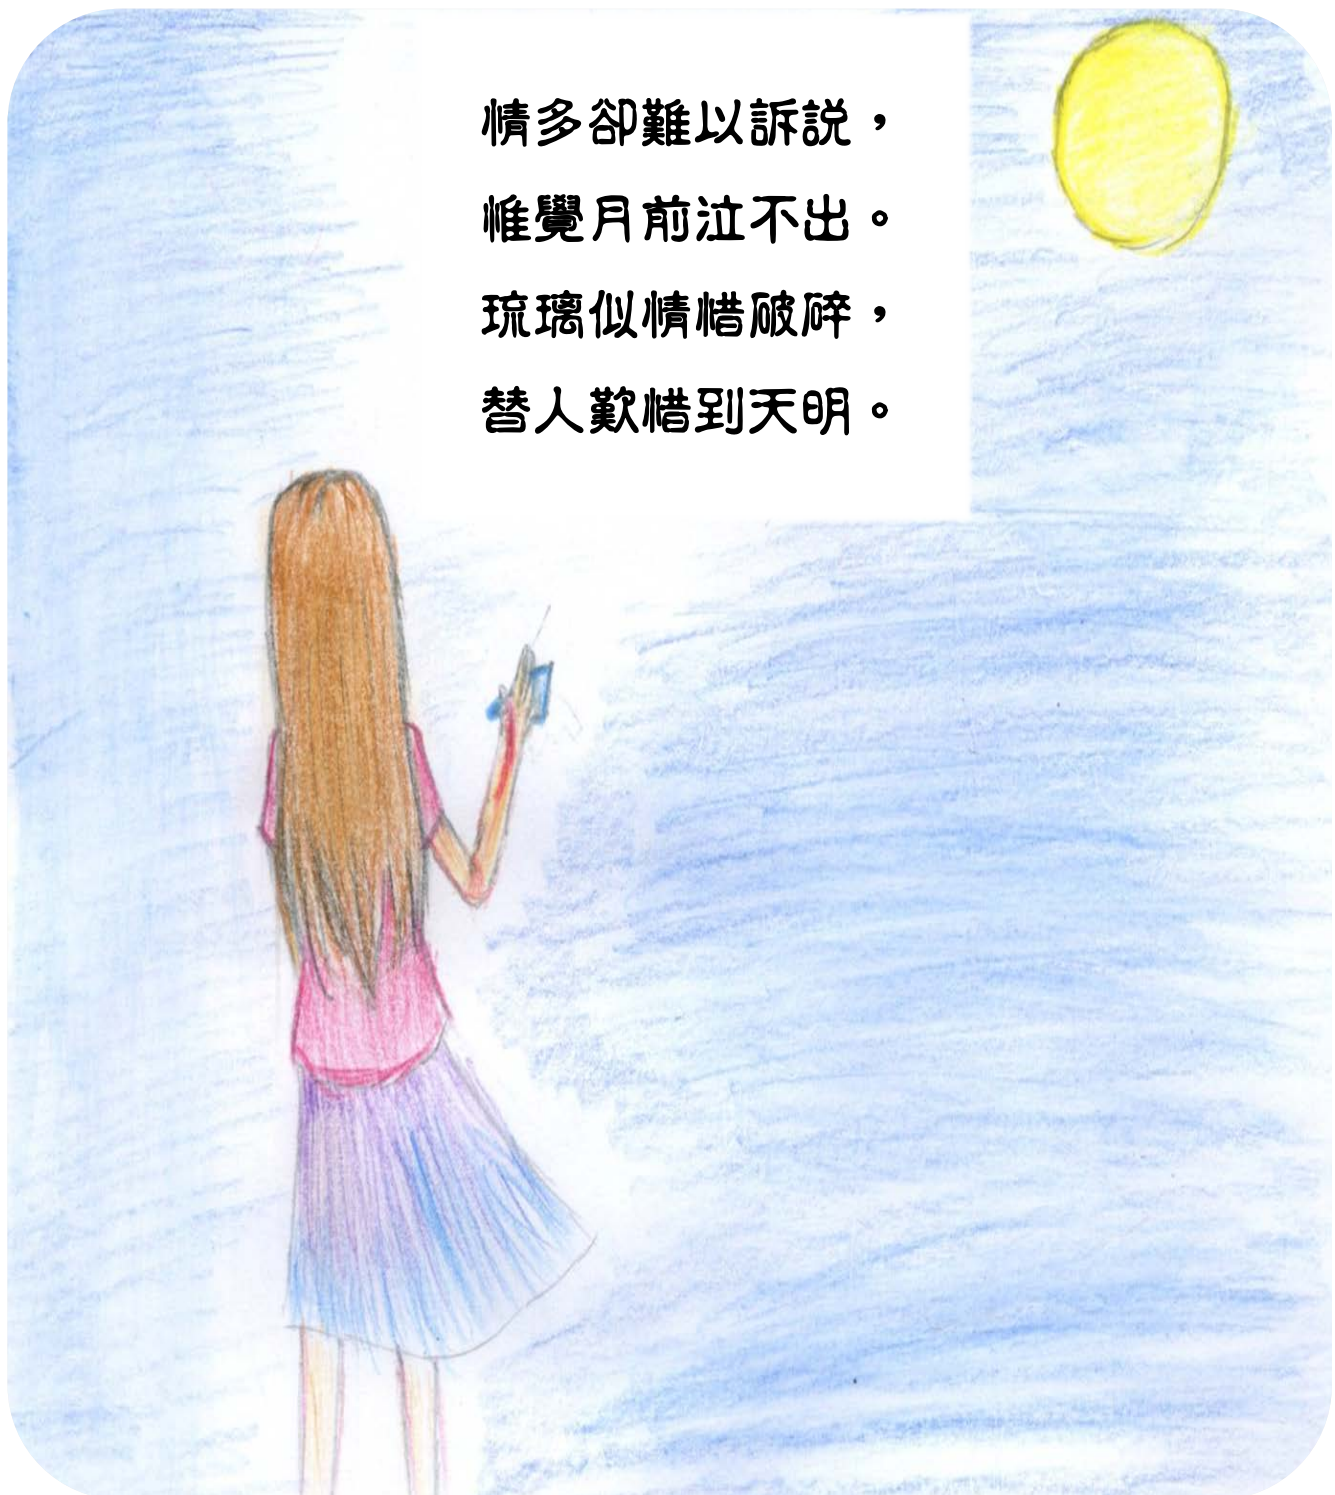 情多卻難以訴説，
惟覺月前泣不出。
琉璃似情惜破碎，
替人歎惜到天明。